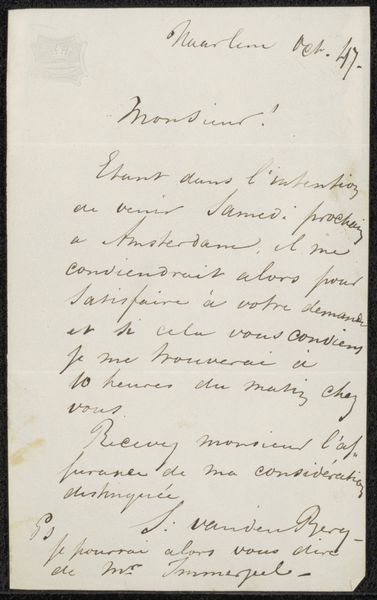 Haarlem Oct. 47.
Monsieur!
Etant dans l'intention
de venir Samedi prochain
a Amsterdam, il me
conviendrait alors pour
satisfaire à votre demande
et si cela vous convient
je me trouverai à
10 heures du matin chez
vous
Recevez monsieur l'as,
surance de ma considération
distinguée
S. van den Berg
Ps
je pourrai alors vous dire
de Mr Immerzeel